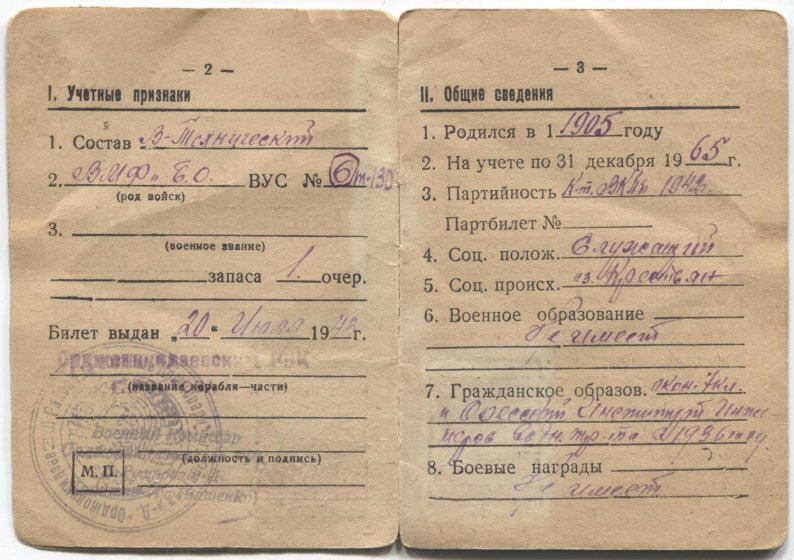 — 2 —
I. Учетные признаки
1. Состав В-Технический
2. ВМФ и Б.О. ВУС №
(род войск)
3.
(военное звание)
запаса 1. очер.
Билет выдан „20“ Июля 1942 г.
Орджоникидзевский РВК
(название корабля—части)
Военный Комиссар
(должность и подпись)
М. П.
— 3 —
II. Общие сведения
1. Родился в 1 1905 году
2. На учете по 31 декабря 19 65 г.
3. Партийность К-т. ВКПб 1942г.
Партбилет №
4. Соц. полож. Служащий
5. Соц. происх. из Крестьян
6. Военное образование
Не имеет
7. Гражданское образов. окон. 7 кл.
и Одесский Институт Инже-
неров в 1936 году
8. Боевые награды
Не имеет